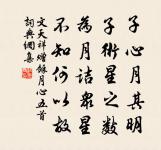 子心月其明
子術星之數
為月詰眾星
不知何以故
文天祥贈餘月心五首
詞典網集